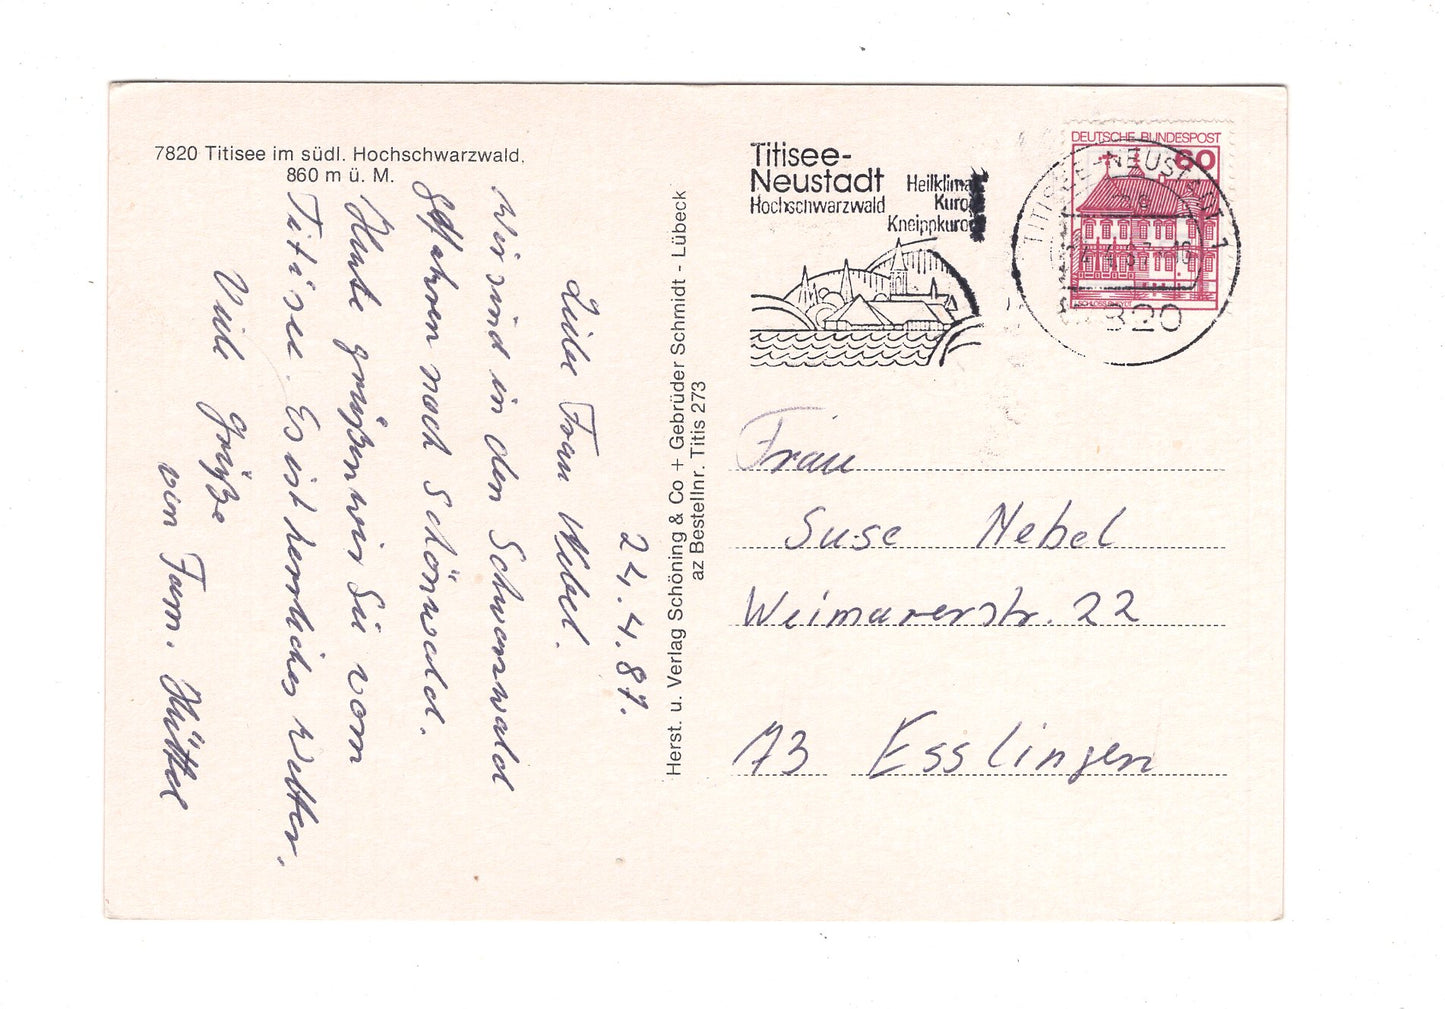 7820 Titisee im südl. Hochschwarzwald,
860 m ü. M.
24.4.87.
Liebe Frau Nebel.
Wir sind in den Schwarzwald
gefahren nach Schönwald.
Heute grüßen wir Sie vom
Titisee. Es ist herrliches Wetter.
Viele Grüße
von Fam. Hüttel
Herst. u. Verlag Schöning & Co + Gebrüder Schmidt - Lübeck
az Bestellnr. Titis 273
Titisee-
Neustadt
Hochschwarzwald
Heilklima
Kuro
Kneippkuro
DEUTSCHE BUNDESPOST
60
TITISEE-NEUSTADT 1
820
Frau
Suse Nebel
Weimarerstr. 22
73 Esslingen